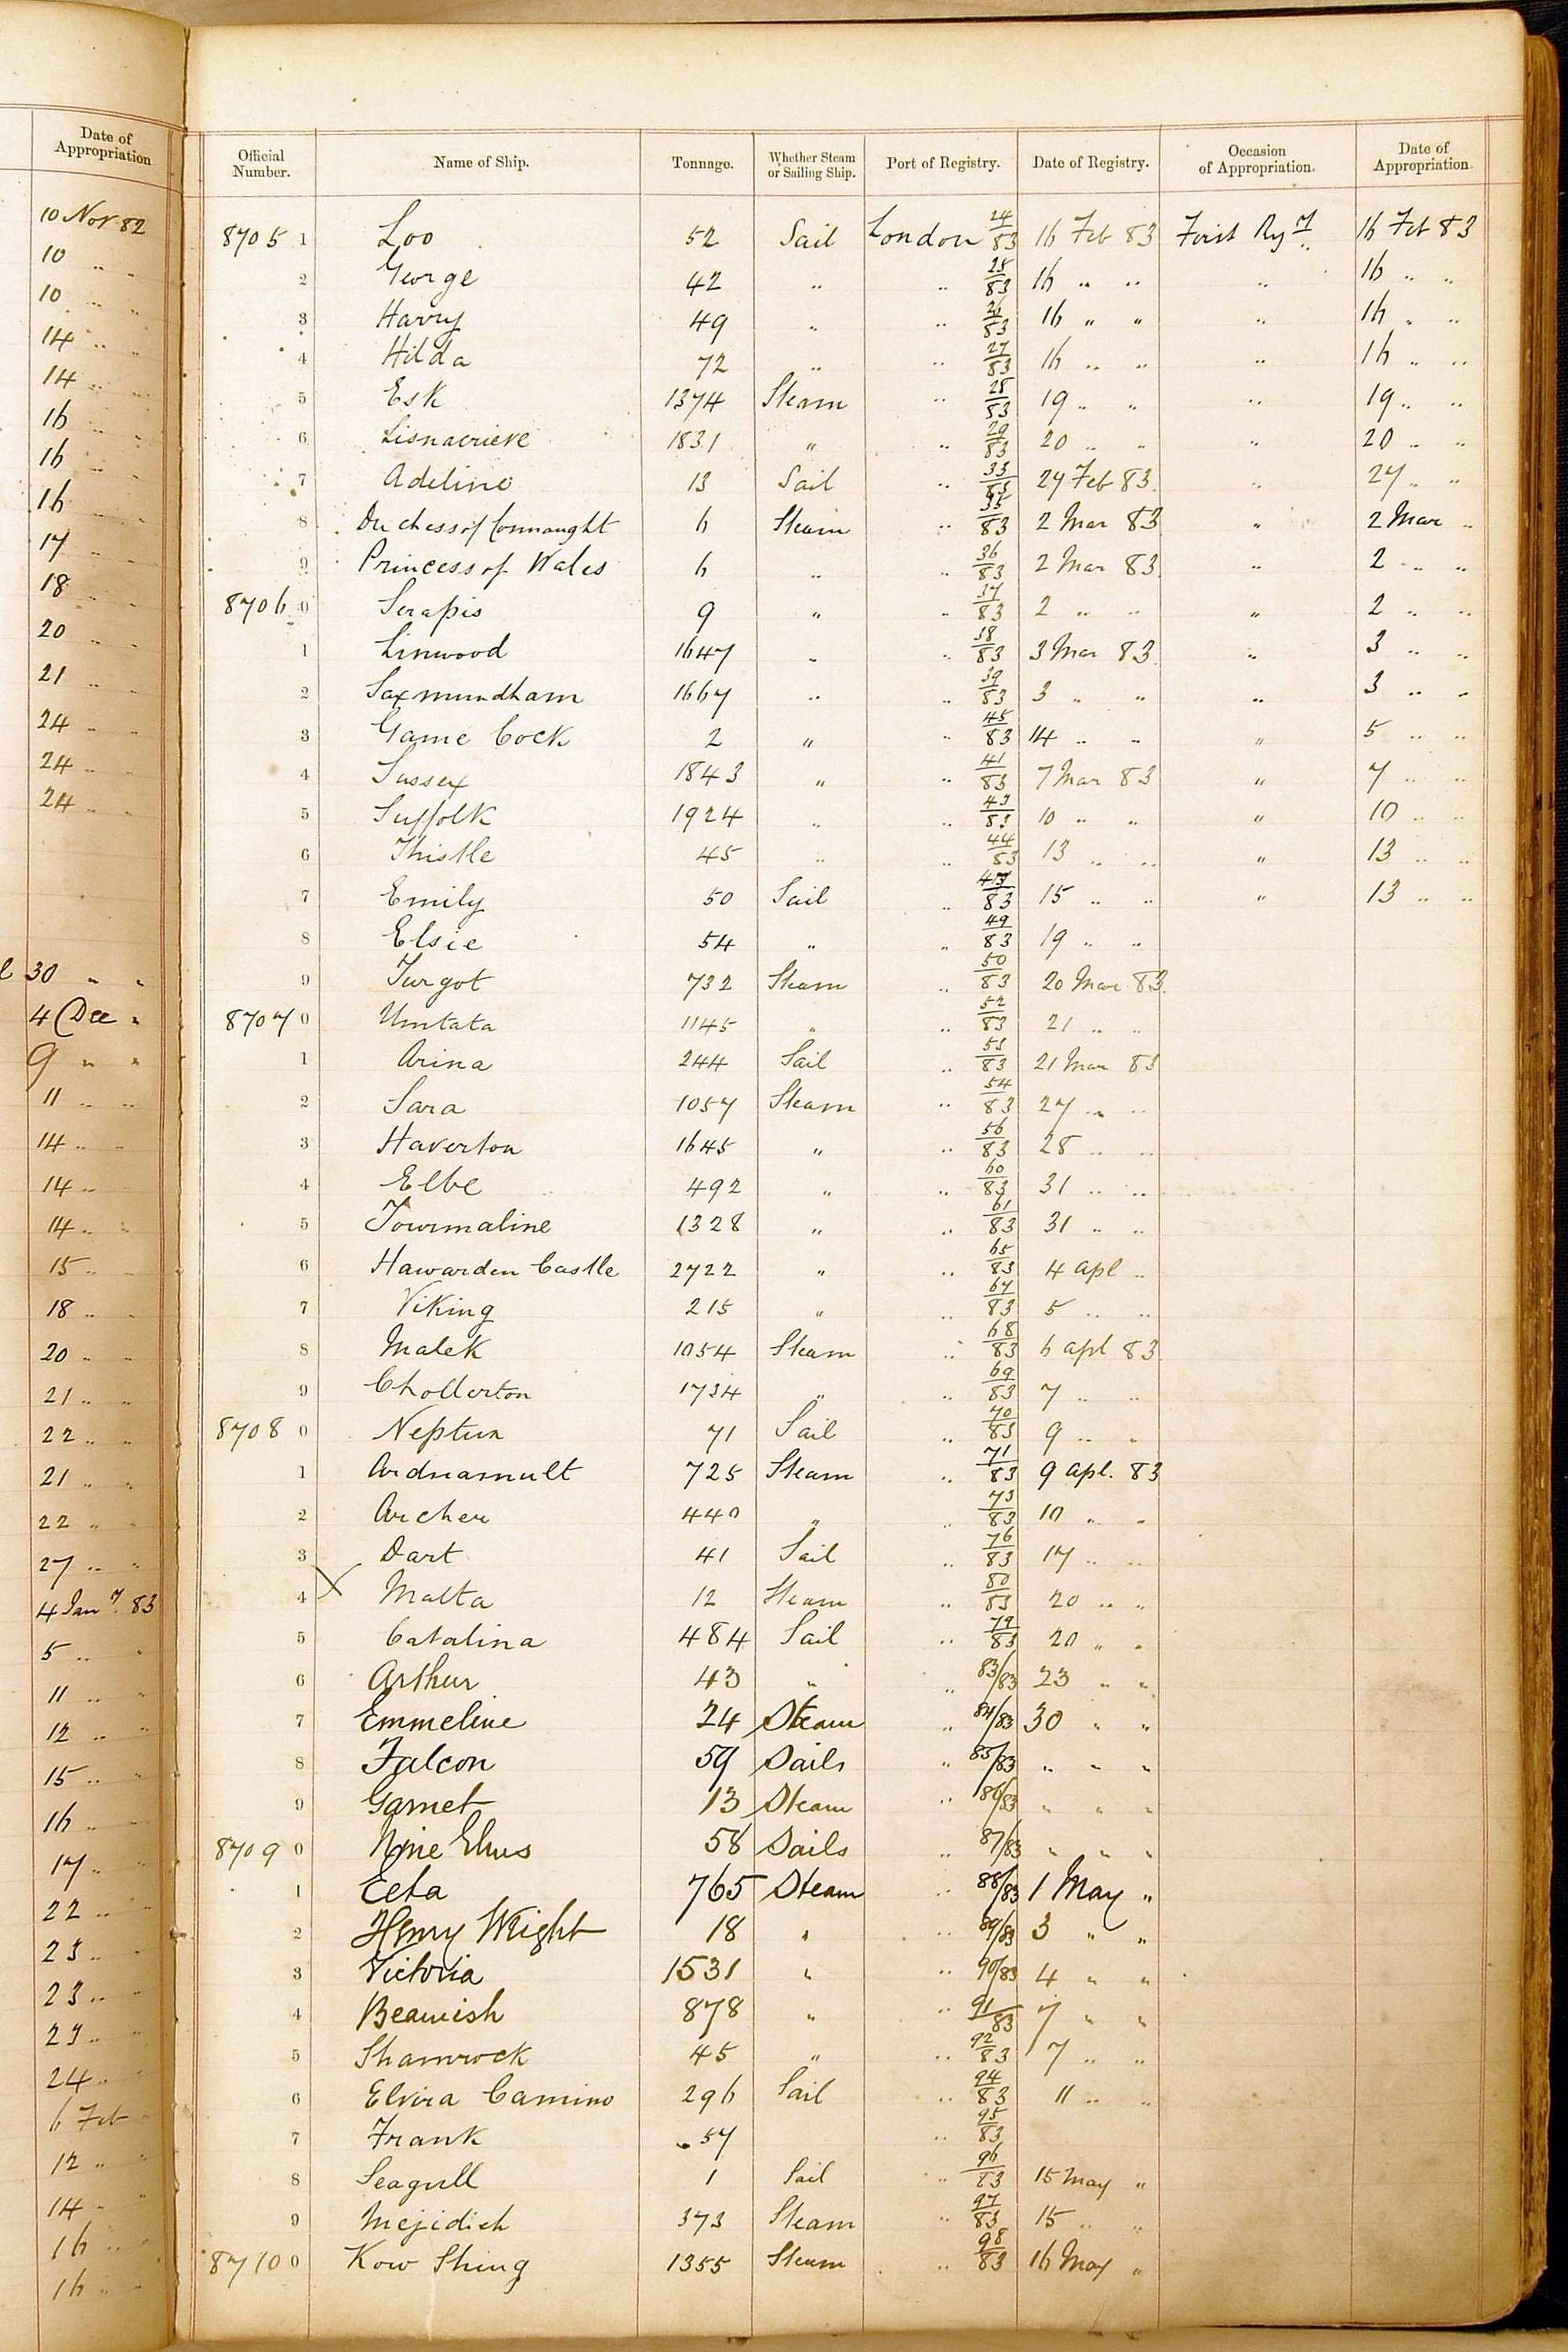 Date of Appropriation
10 Nov 82
10 " "
10 " "
14 " "
14 " "
16 " "
16 " "
16 " "
17 " "
18 " "
20 " "
21 " "
24 " "
24 " "
24 " "
30 " "
4 Dec "
9 " "
11 " "
14 " "
14 " "
14 " "
15 " "
18 " "
20 " "
21 " "
22 " "
21 " "
22 " "
27 " "
4 Jany 83
5 " "
11 " "
12 " "
15 " "
16 " "
17 " "
22 " "
23 " "
23 " "
23 " "
24 " "
6 Feb "
12 " "
14 " "
16 " "
16 " "
Official Number. Name of Ship. Tonnage. Whether Steam or Sailing Ship. Port of Registry. Date of Registry. Occasion of Appropriation. Date of Appropriation.
8705 1 Loo 52 Sail London 24/83 16 Feb 83 First Rgy 16 Feb 83
2 George 42 " " 25/83 16 " " " 16 " "
3 Harry 49 " " 26/83 16 " " " 16 " "
4 Hilda 72 " " 27/83 16 " " " 16 " "
5 Esk 1374 Steam " 28/83 19 " " " 19 " "
6 Lisnacrieve 1831 " " 29/83 20 " " " 20 " "
7 Adeline 13 Sail " 33/83 27 Feb 83 " 27 " "
8 Duchess of Connaught 6 Steam " 35/83 2 Mar 83 " 2 Mar "
9 Princess of Wales 6 " " 36/83 2 Mar 83 " 2 " "
8706 0 Serapis 9 " " 37/83 2 " " " 2 " "
1 Linwood 1647 " " 38/83 3 Mar 83 " 3 " "
2 Saxmundham 1667 " " 39/83 3 " " " 3 " "
3 Game Cock 2 " " 45/83 14 " " " 5 " "
4 Sussex 1843 " " 41/83 7 Mar 83 " 7 " "
5 Suffolk 1924 " " 43/83 10 " " " 10 " "
6 Thistle 45 " " 44/83 13 " " " 13 " "
7 Emily 50 Sail " 83 15 " " " 13 " "
8 Elsie 54 " " 49/83 19 " "
9 Turgot 732 Steam " 50/83 20 Mar 83
8707 0 Umtata 1145 " " 52/83 21 " "
1 Arina 244 Sail " 53/83 21 Mar 83
2 Sara 1057 Steam " 54/83 27 " "
3 Haverton 1645 " " 56/83 28 " "
4 Elbe 492 " " 60/83 31 " "
5 Tourmaline 1328 " " 61/83 31 " "
6 Hawarden Castle 2722 " " 65/83 4 Apl "
7 Viking 215 " " 67/83 5 " "
8 Malek 1054 Steam " 68/83 6 Apl 83
9 Chollerton 1734 " " 69/83 7 " "
8708 0 Neptun 71 Sail " 70/83 9 " "
1 Ardnamult 725 Steam " 71/83 9 Apl. 83
2 Archer 440 " " 73/83 10 " "
3 Dart 41 Sail " 76/83 17 " "
4 X Malta 12 Steam " 80/83 20 " "
5 Catalina 484 Sail " 79/83 20 " "
6 Arthur 43 " " 83/83 23 " "
7 Emmeline 24 Steam " 84/83 30 " "
8 Falcon 59 Sails " 85/83 " " "
9 Garnet 13 Steam " 86/83 " " "
8709 0 Nine Elms 58 Sails " 87/83 " " "
1 Eeta 765 Steam " 88/83 1 May "
2 Henry Wright 18 " " 89/83 3 " "
3 Victoria 1531 " " 90/83 4 " "
4 Beamish 878 " " 91/83 7 " "
5 Shamrock 45 " " 92/83 7 " "
6 Elvira Camino 296 Sail " 94/83 11 " "
7 Frank 57 " 95/83
8 Seagull 1 Sail " 96/83 15 May "
9 Mejidieh 373 Steam " 97/83 15 " "
8710 0 Kow Shing 1355 Steam " 98/83 16 May "